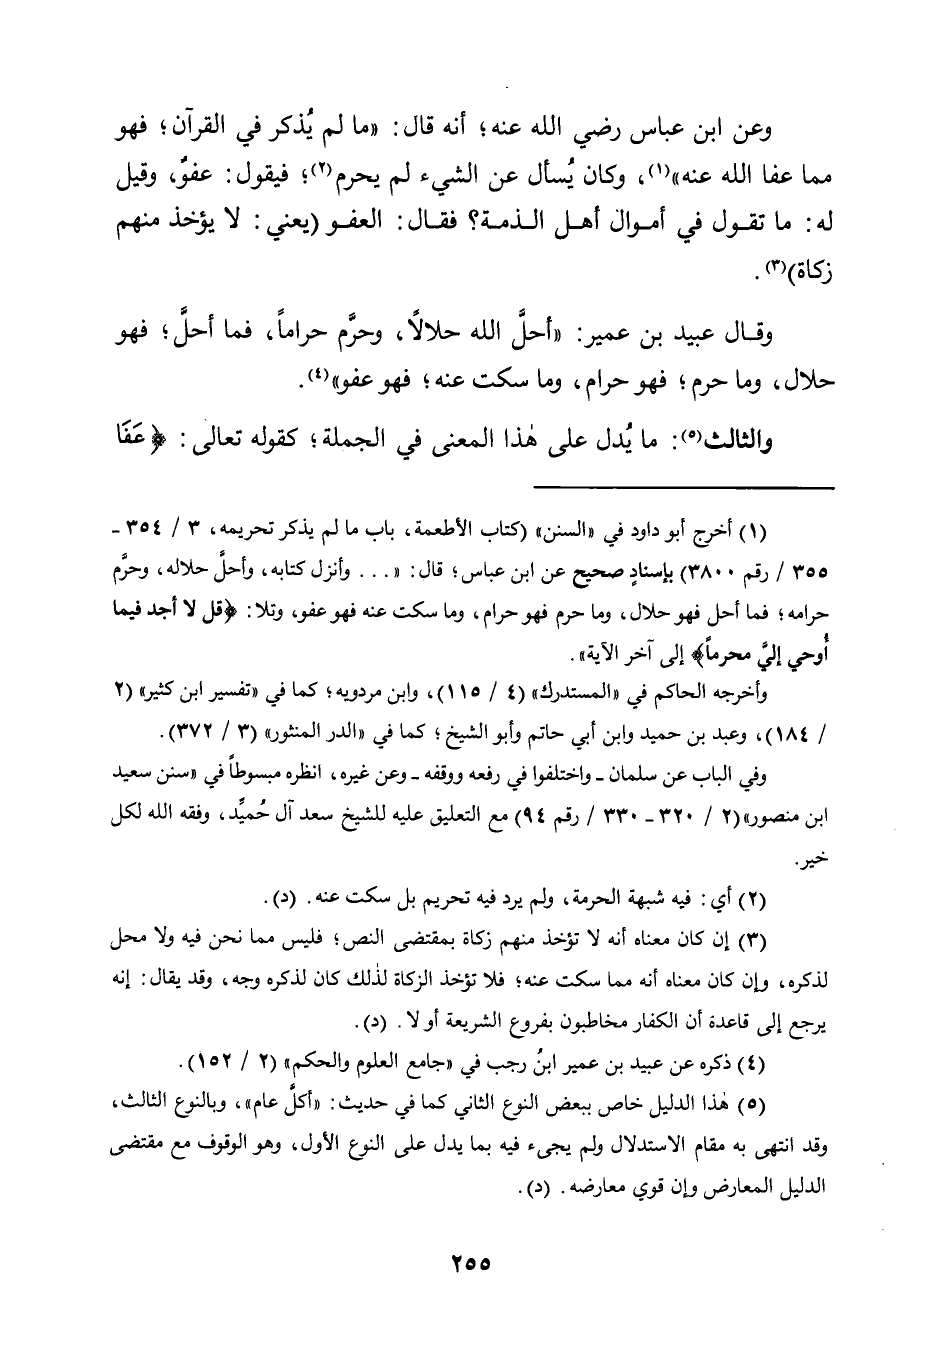 وعن ابن عباس رضي الله عنه؛ أنه قال: «ما لم يُذكر في القرآن؛ فهو
مما عفا الله عنه»(١)، وكان يُسأل عن الشيء لم يحرم(٢)؛ فيقول: عفوٌ، وقيل
له: ما تقـول في أمـوال أهـل الـذمـة؟ فقـال: العفـو (يعني: لا يؤخذ منهم
زكاة)(٣).
وقـال عبيد بن عمير: «أحلَّ الله حلالاً، وحرَّم حراماً، فما أحلَّ؛ فهو
حلال، وما حرم؛ فهو حرام، وما سكت عنه؛ فهو عفو»(٤).
والثالث(٥): ما يُدل على هٰذا المعنى في الجملة؛ كقوله تعالى: ﴿عَفَا
(١) أخرج أبو داود في «السنن» (كتاب الأطعمة، باب ما لم يذكر تحريمه، ٣ / ٣٥٤ ـ
٣٥٥ / رقم ٣٨٠٠) بإسنادٍ صحيح عن ابن عباس؛ قال: «... وأنزل كتابه، وأحلَّ حلاله، وحرَّم
حرامه؛ فما أحل فهو حلال، وما حرم فهو حرام، وما سكت عنه فهو عفو، وتلا: ﴿قل لا أجد فيما
أُوحي إليَّ محرماً﴾ إلى آخر الآية».
وأخرجه الحاكم في «المستدرك» (٤ / ١١٥)، وابن مردويه؛ كما في «تفسير ابن كثير» (٢
/ ١٨٤)، وعبد بن حميد وابن أبي حاتم وأبو الشيخ؛ كما في «الدر المنثور» (٣ / ٣٧٢).
وفي الباب عن سلمان ـ واختلفوا في رفعه ووقفه ـ وعن غيره، انظره مبسوطاً في «سنن سعيد
ابن منصور»(٢ / ٣٢٠ ـ ٣٣٠ / رقم ٩٤) مع التعليق عليه للشيخ سعد آل حُميِّد، وفقه الله لكل
خير.
(٢) أي: فيه شبهة الحرمة، ولم يرد فيه تحريم بل سكت عنه. (د).
(٣) إن كان معناه أنه لا تؤخذ منهم زكاة بمقتضى النص؛ فليس مما نحن فيه ولا محل
لذكره، وإن كان معناه أنه مما سكت عنه؛ فلا تؤخذ الزكاة لذٰلك كان لذكره وجه، وقد يقال: إنه
يرجع إلى قاعدة أن الكفار مخاطبون بفروع الشريعة أو لا. (د).
(٤) ذكره عن عبيد بن عمير ابنُ رجب في «جامع العلوم والحكم» (٢ / ١٥٢).
(٥) هٰذا الدليل خاص ببعض النوع الثاني كما في حديث: «أكلَّ عام»، وبالنوع الثالث،
وقد انتهى به مقام الاستدلال ولم يجىء فيه بما يدل على النوع الأول، وهو الوقوف مع مقتضى
الدليل المعارض وإن قوي معارضه. (د).
٢٥٥